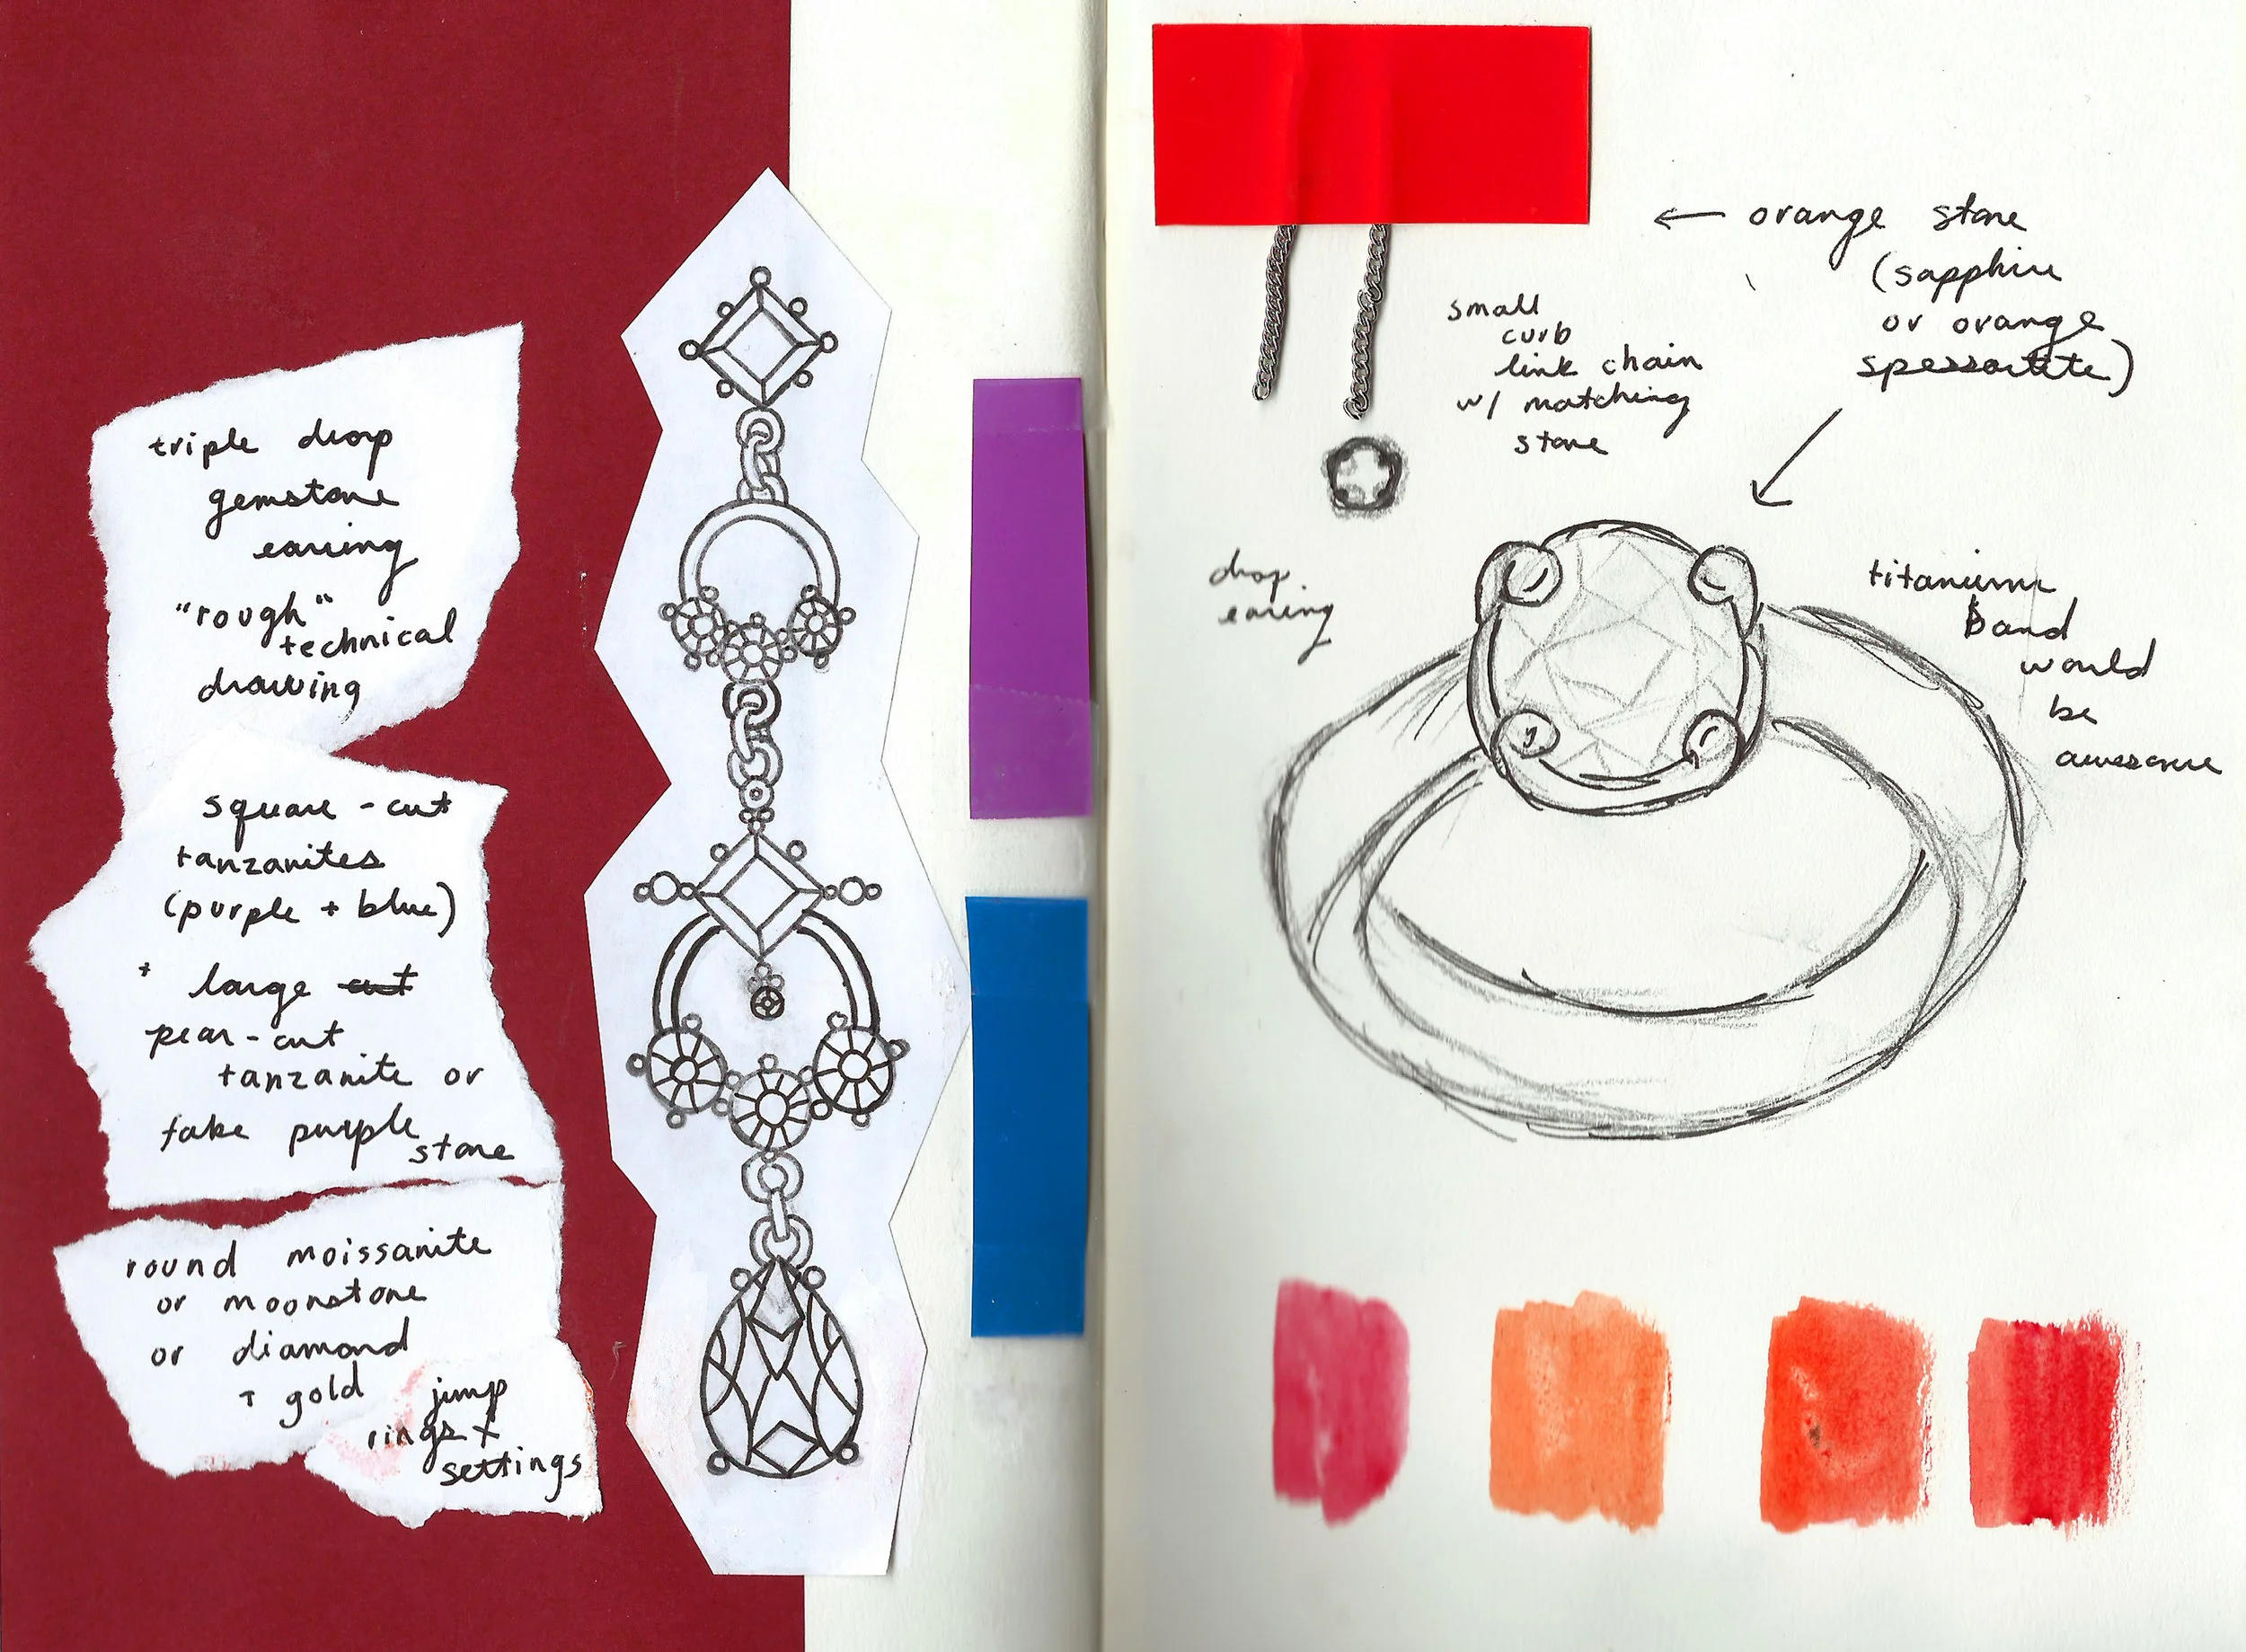 triple drop
gemstone
earring
"rough"
technical
drawing
square-cut
tanzanites
(purple + blue)
+ large cut
pear-cut
tanzanite or
fake purple
stone
round moissanite
or moonstone
or diamond
+ gold jump
rings +
settings
← orange stone
(sapphire
or orange
spessartite)
small
curb
link chain
w/ matching
stone
drop
earing
titanium
Band
would
be
awesome